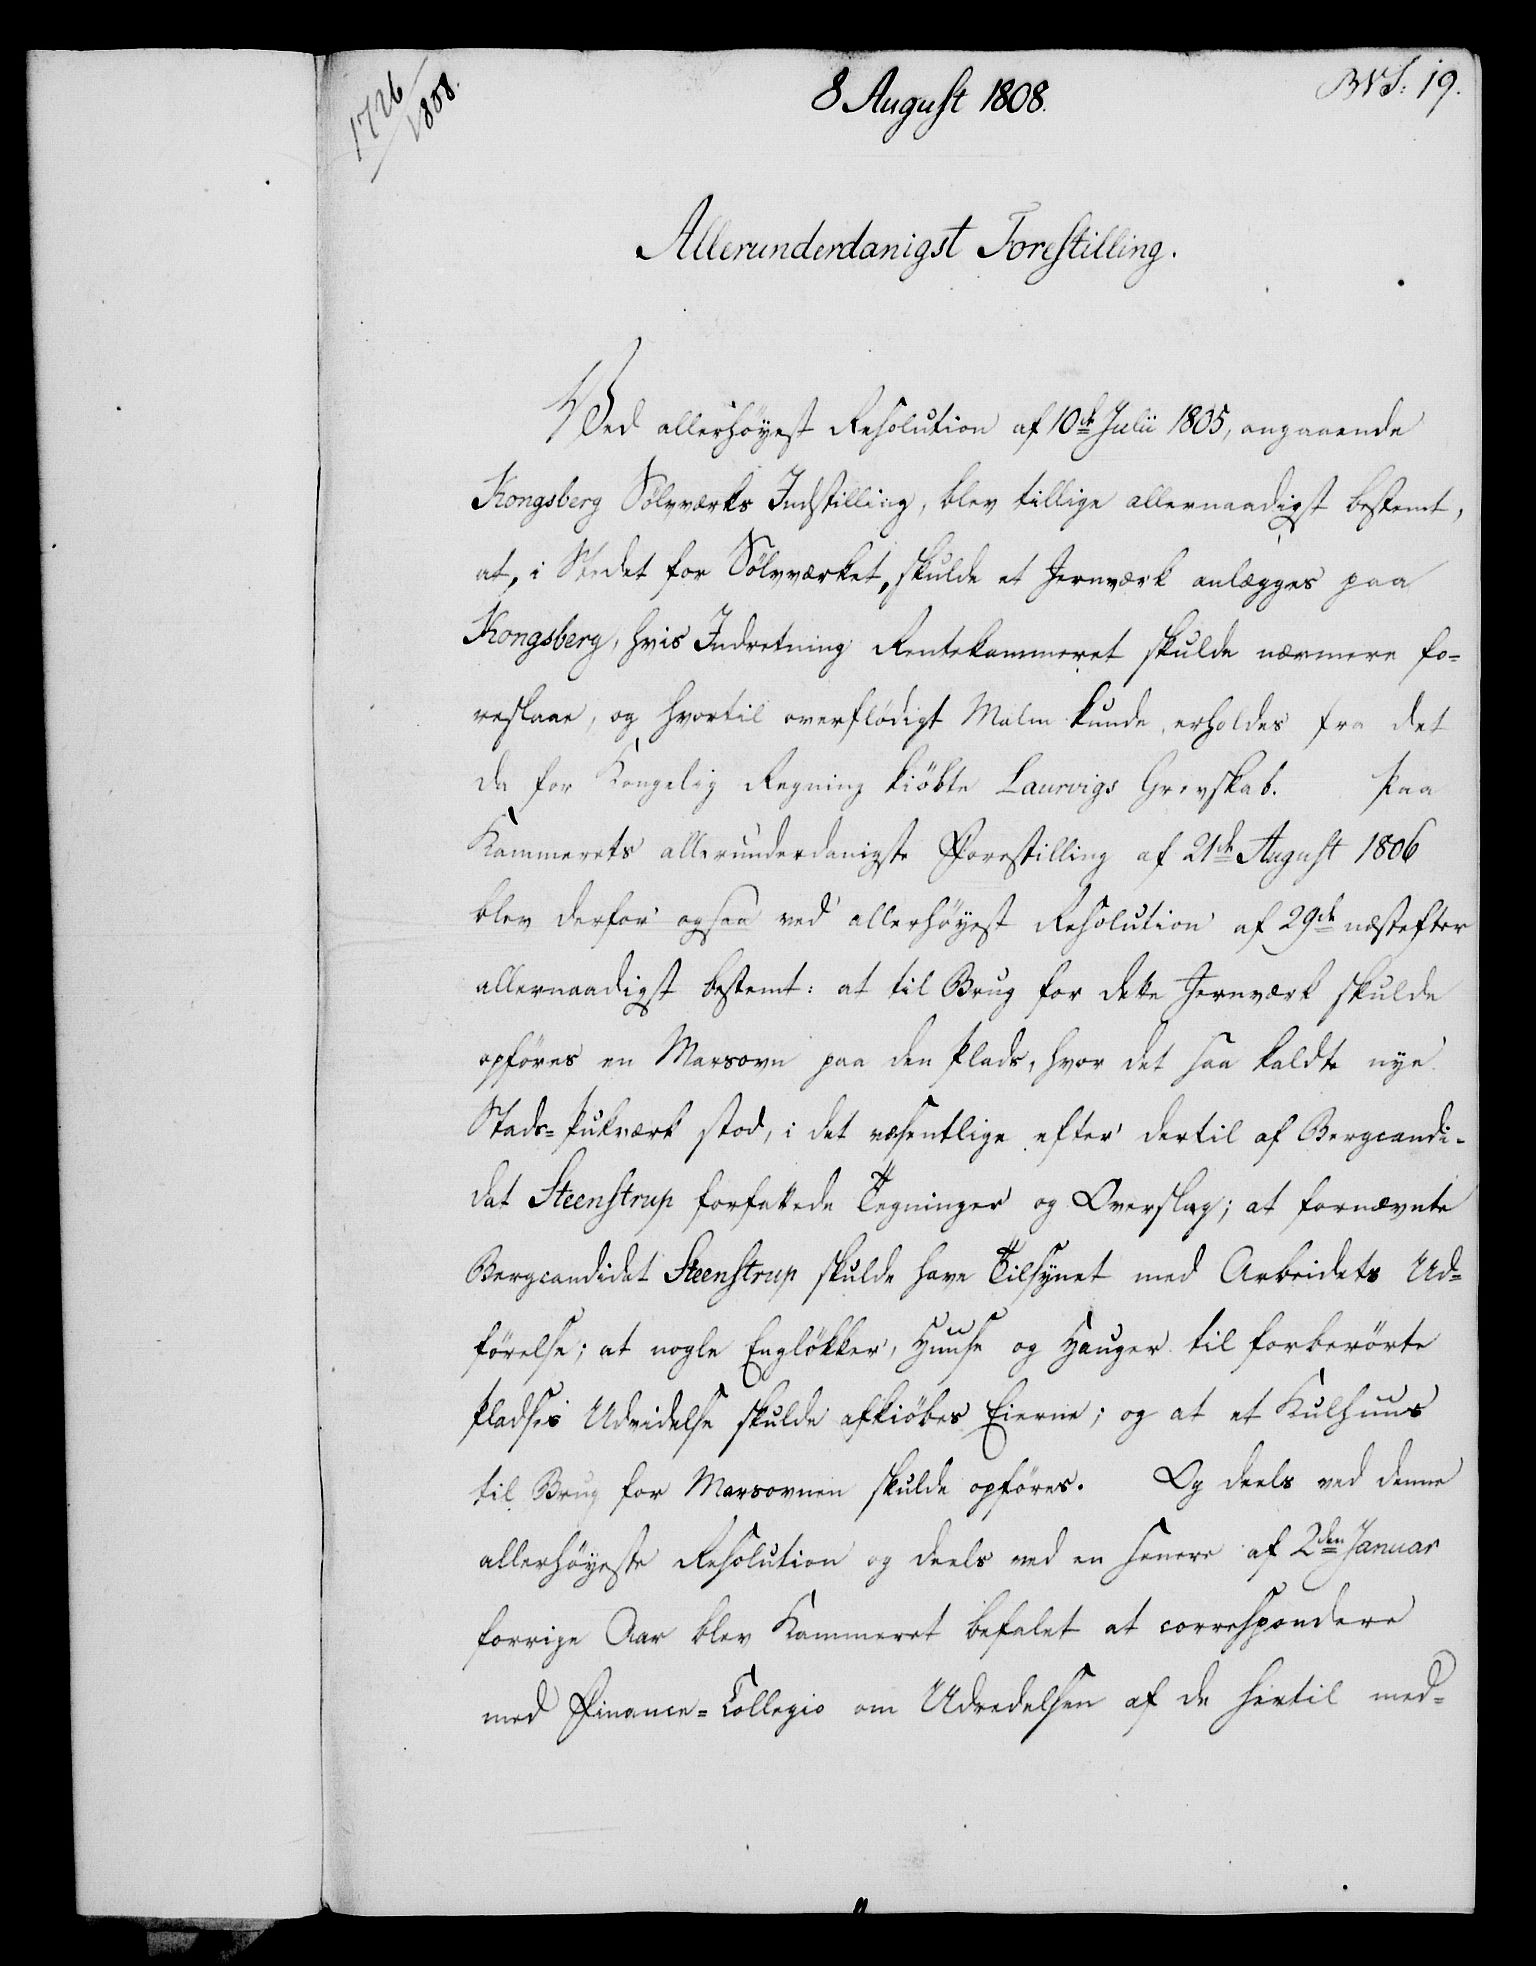 1726/1808.
8 August 1808.
19.
Allerunderdanigst Forestilling.
Ved allerhöyest Resolution af 10de Julii 1805, angaaende
Kongsberg Sölvværks Indstilling, blev tillige allernaadigst bestemt,
at, i Stedet for Sölvværket, skulde et Jernværk anlægges paa
Kongsberg, hvis Indretning Rentekammeret skulde nærmere fo=
reslaae, og hvortil overflödigt Malm kunde erholdes fra det
da for Kongelig Regning kiöbte Laurvigs Grevskab. Paa
Kammerets allerunderdanigste Forestilling af 21de August 1806
blev derfor ogsaa ved allerhöyest Resolution af 29de næstefter
allernaadigst bestemt: at til Brug for dette Jernværk skulde
opföres en Masovn paa den Plads, hvor det saa kaldte nye
Stads-Pukværk stod, i det væsentlige efter dertil af Bergcandi-
dat Steenstrup forfattede Tegninger og Overslag; at fornævnte
Bergcandidat Steenstrup skulde have Tilsynet med Arbeidets Ud=
förelse; at nogle Englökker, Huuse og Hauger til forberörte
Pladses Udvidelse skulde afkiöbes Eierne; og at et Kulhuus
til Brug for Masovnen skulde opföres. Og deels ved denne
allerhöyeste Resolution og deels ved en senere af 2den Januar
forrige Aar blev Kammeret befalet at correspondere
med Finance=Collegio om Udredelsen af de hertil med=